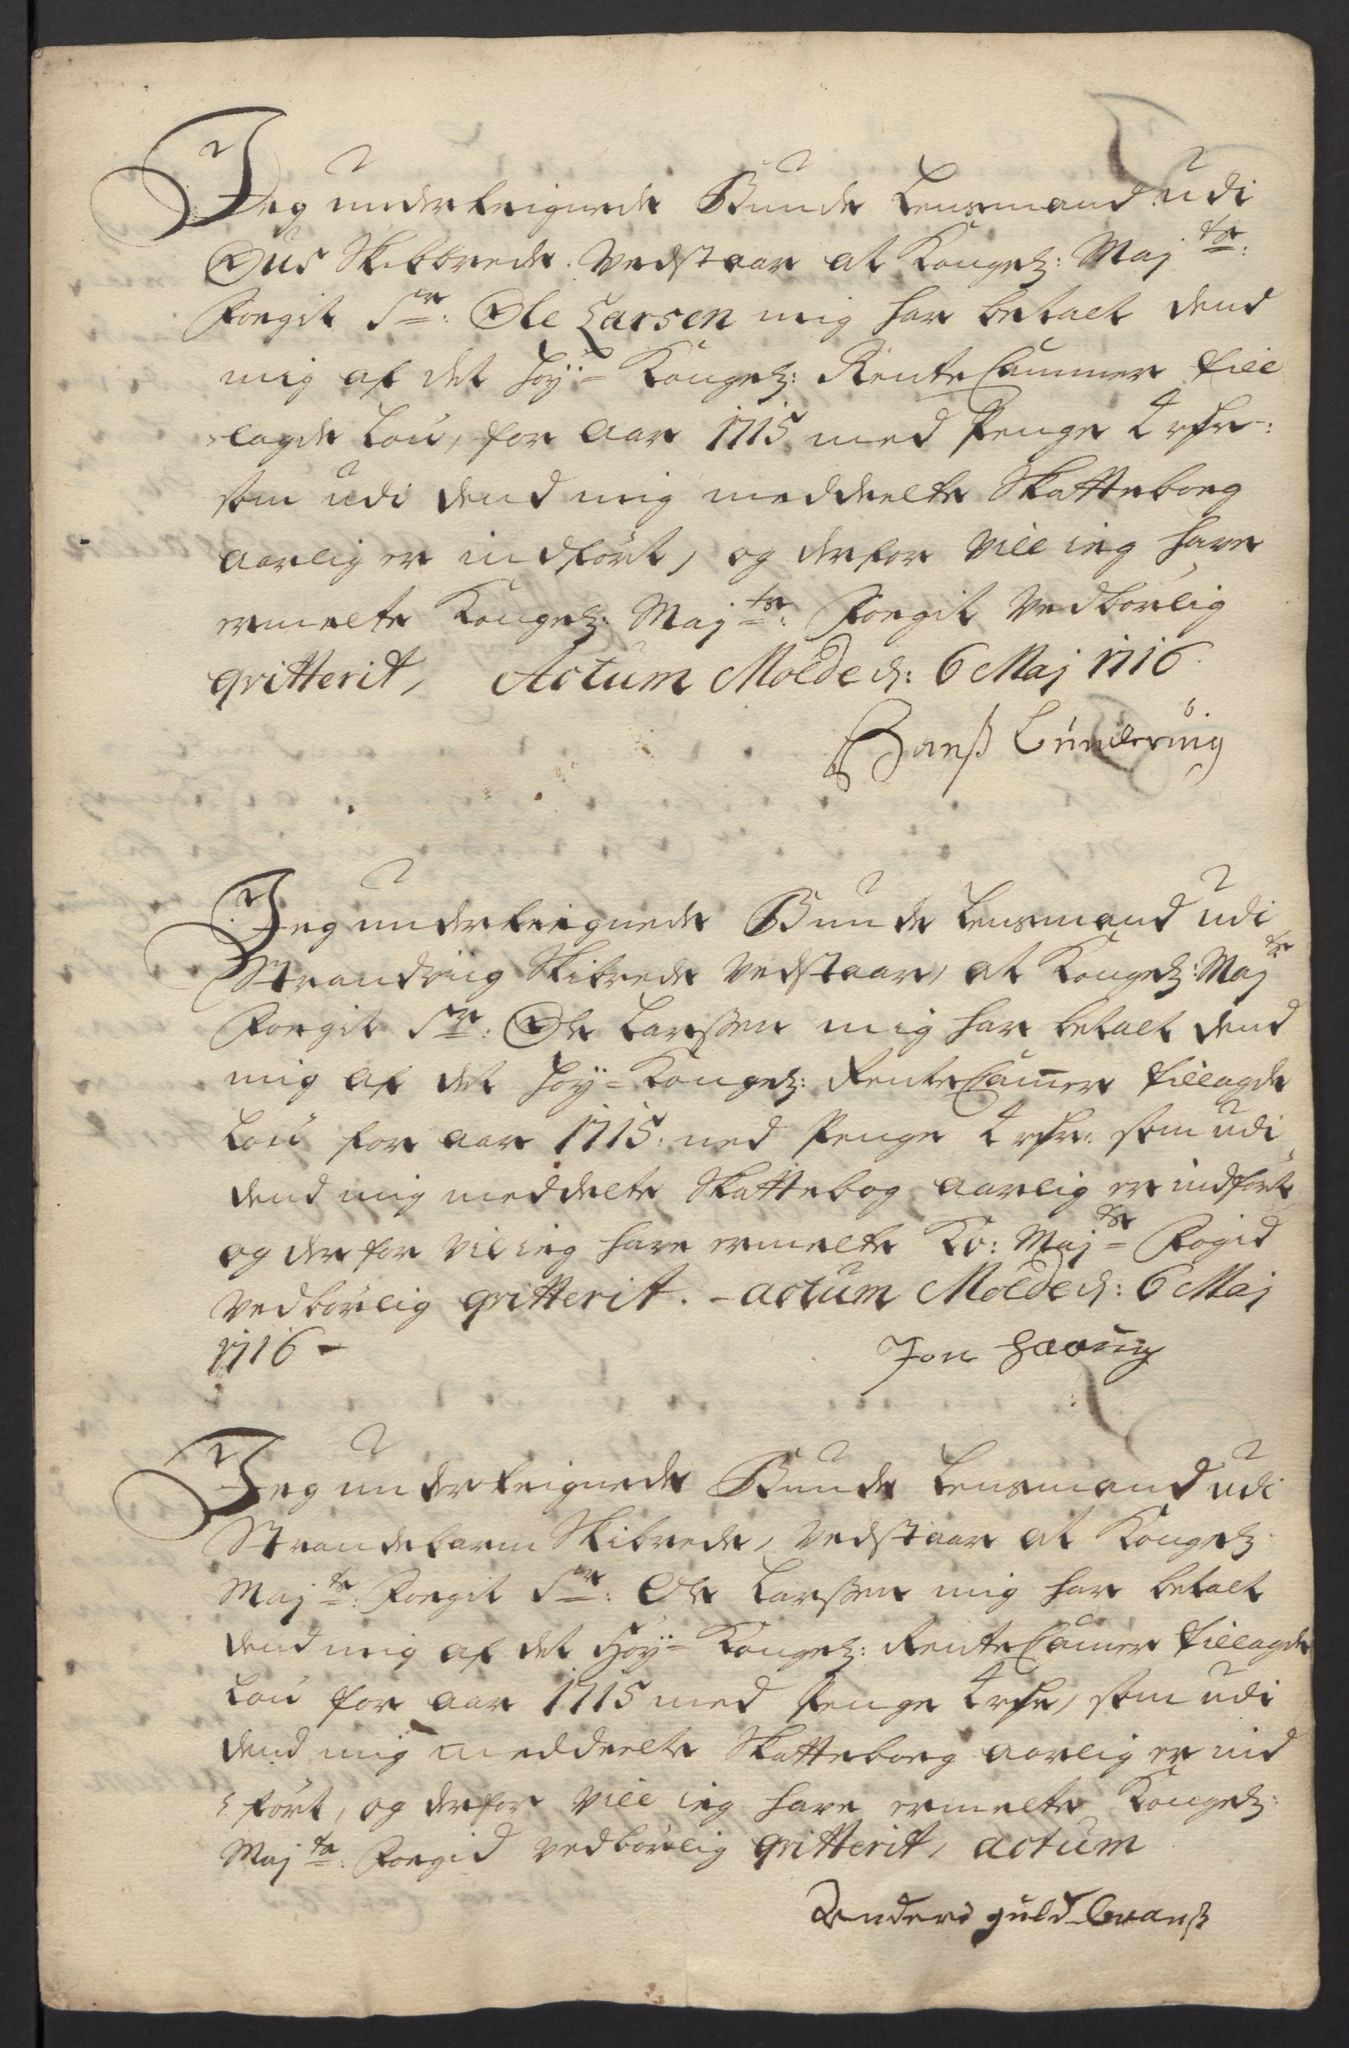 Jeg underteignede Bunde Lensmand udi
Öus Skibbrede. Vedstaar at Kongel: Maj^ts:
Foegit S^r: Ole Larsen mig har betalt dend
mig af det höy= Kongel: Rente Cammer till
lagde Lön, for Aar 1715 med Penge 4 rdr:
som udi dend mig meddeelte Skatteboeg
aarlig er indfört, og derfor vill ieg have
ermelte Kongel: Maj^ts: Foegit Vedbörlig
qvitterit, Actum Molde d: 6 Maj 1716.
Hanß
Jeg underteignede Bunde Lensmand udi
Strandviig Skibrede Vedstaar, at Kongel: Maj^ts
Foegit S^r: Ole Larssen mig har betalt dend
mig af det höy= Kongel: Rente Camer tillagde
Lön for aar 1715: med Penge 4 rdr: som udi
dend mig meddelte Skattebog aarlig er indfört,
og derfor vil ieg have ermelte Ko: Maj^ts Fogid
vedbörlig qvitterit. - actum Molde d: 6 Maj
1716 -
Jon
Jeg underteignede Bunde Lensmand udi
Strandebarm Skibrede, Vedstaar at Kongel:
Maj^ts: Foegit S^r: Ole Larssen mig har betalt
dend mig af det Höy= Kongel: Rente Camer tillagde
Lön for aar 1715 med Penge 4 rdr, som udi
dend mig meddeelte Skatteboeg aarlig er ind
fört, og derfor vill ieg have ermelte Kongel:
Maj^ts: Foegid vedbörlig qvitterit, actum
Anders guldbranß